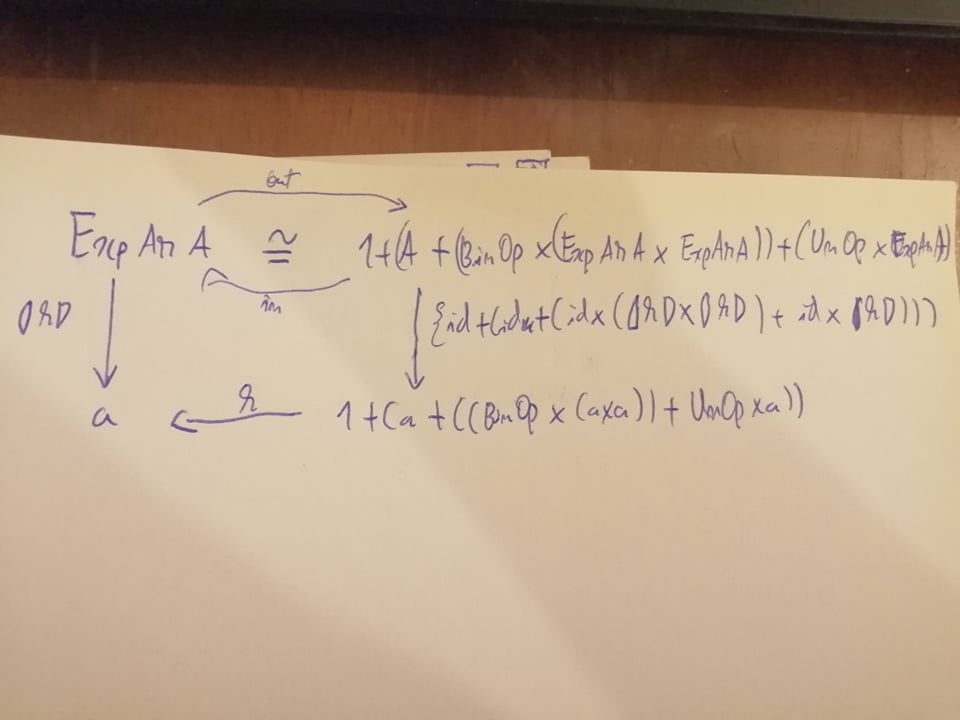 out
ExpAr A ≅ 1+(A + (BinOp × (ExpAr A × ExpAr A)) + (UnOp × ExpAr A)
in
{id+(id+(id×( × ) + id × )))
a ← g 1+(a +((BinOp × (a×a)) + UnOp × a))